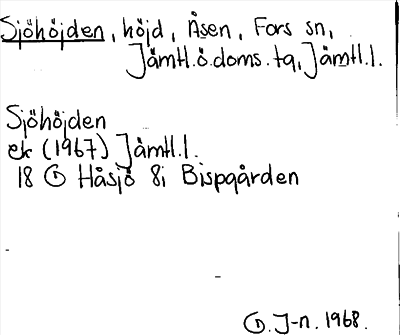 Sjöhöjden, höjd, Åsen, Fors sn,
Jämtl.ö.doms.tg, Jämtl.l.
Sjöhöjden
ek (1967) Jämtl.l.
18 Håsjö 8i Bispgården
J-n. 1968.